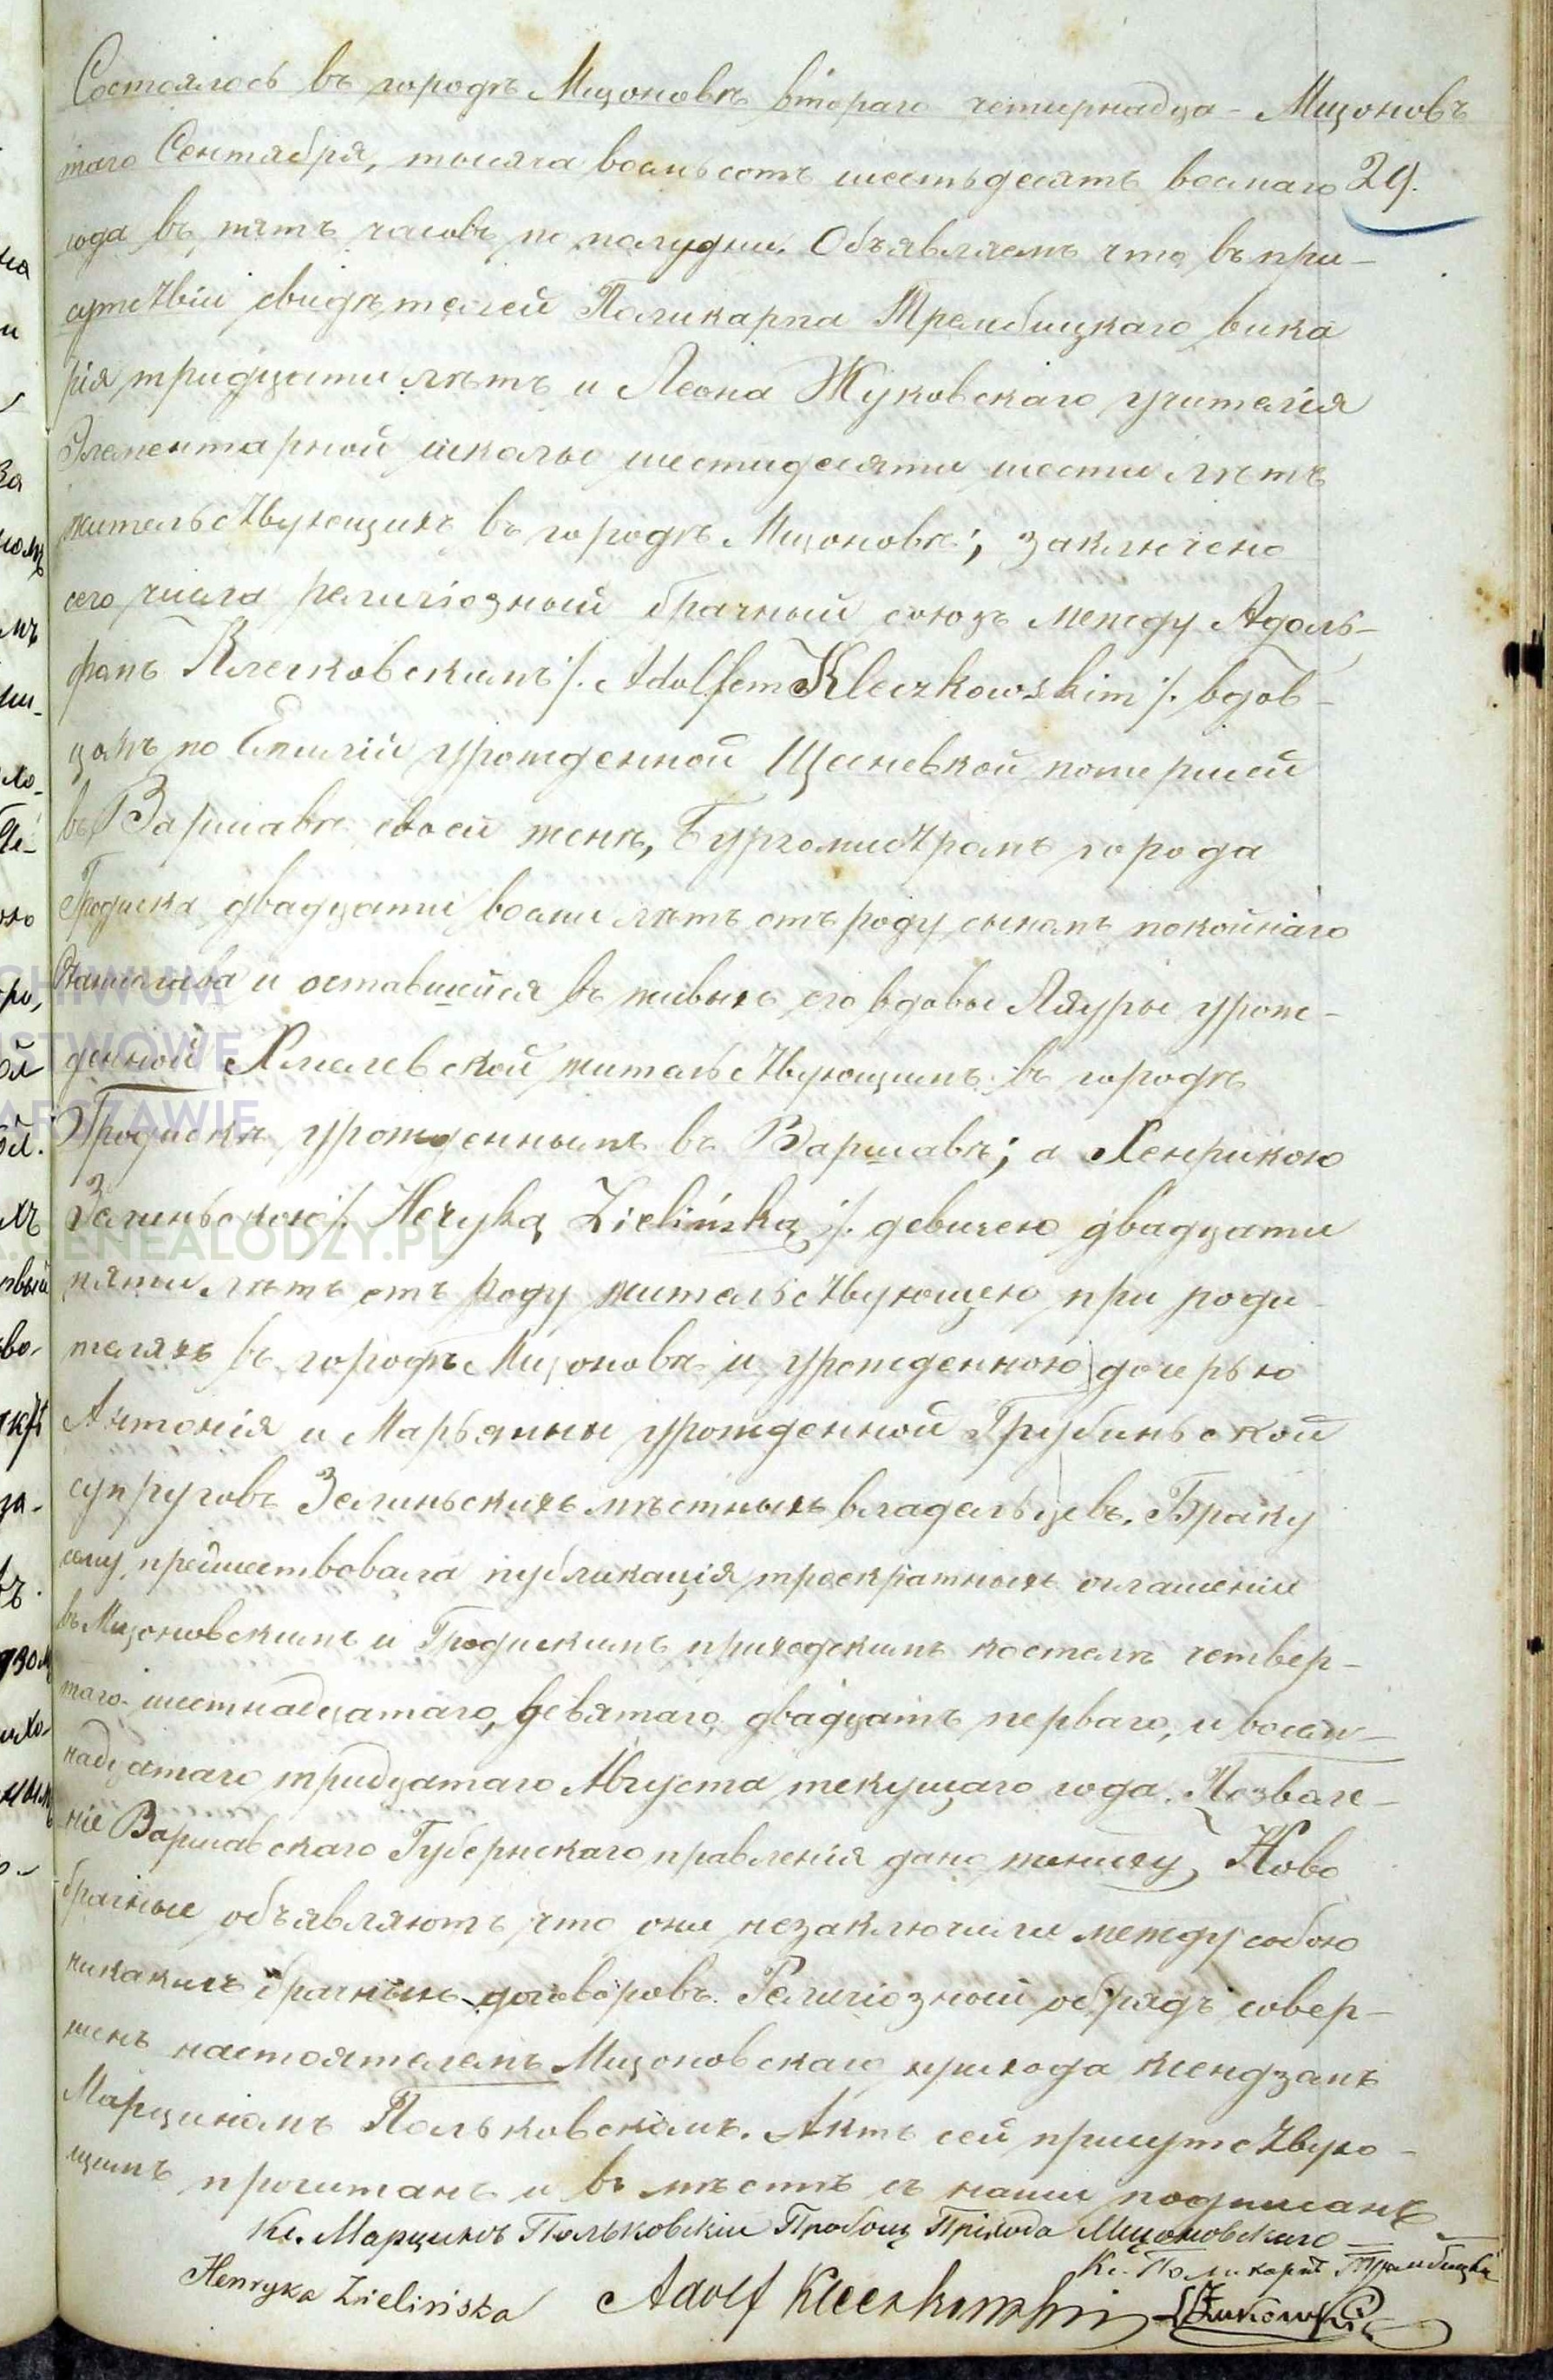 Состоялось въ городѣ Мщоновѣ втораго четырнадца-
таго Сентября, тысяча восмьсотъ шестьдесятъ восмаго
года въ пять часовъ по полудни. Объявляемъ что въ при-
сутствіи свидѣтелей Поликарпа Трембицкаго вика
рія тридцати лѣтъ и Леона Жуковскаго учителя
Элементарной школы шестидесяти шести лѣтъ
жительствующихъ въ городѣ Мщоновѣ; заключено
сего числа религіозный брачный союзъ между Адоль-
фомъ Клечковскимъ /. Adolfem Kleczkowskim /. вдов-
цомъ по Емиліи урожденной Щеневкой помершей
въ Варшавѣ своей женѣ, Бургомистромъ города
Гродиска двадцати восми лѣтъ отъ роду сыномъ покойнаго
Станислава и оставшейся въ живыхъ его вдовы Ляуры урож-
денной Хмелевской жительствующимъ въ городѣ
Гродискѣ урожденнымъ въ Варшавѣ; а Хенрикою
Зелиньскою /. Henryką Zielińską /. девичею двадцати
пяти лѣтъ отъ роду жительствующею при роди-
теляхъ въ городѣ Мщоновѣ и урожденною дочерью
Антонія и Марьянны урожденной Грубиньской
супруговъ Зелиньскихъ мѣстныхъ владельцевъ. Браку
сему предшествовала публикація троекратныхъ оглашеніи
въ Мщоновскимъ и Гродискимъ приходскимъ костелѣ четвер-
таго шестнадцатаго, девятаго двадцать перваго, и восем-
надцатаго тридцатаго Августа текущаго года. Позволе-
ніе Варшавскаго Губернскаго правленія дано жениху, Ново
брачные объявляютъ что они незаключили между собою
никакихъ брачныхъ договоровъ. Религіозный обрядъ совер-
шенъ настоятелемъ Мщоновскаго прихода ксендзомъ
Марциномъ Польковскомъ. Актъ сей присутствую-
щимъ прочитанъ и въ мѣстѣ съ нами подписанъ
Кс. Марцинъ Польковскіи Пробощ Прихода Мщоновскаго
Кс. Поликарпъ Трембицкій
Henryka Zielińska Adolf Kleczkowski LŻukowski
Мщоновъ
29.
CHIWUM
STWOWE
ARSZAWIE
GENEALODZY.PL